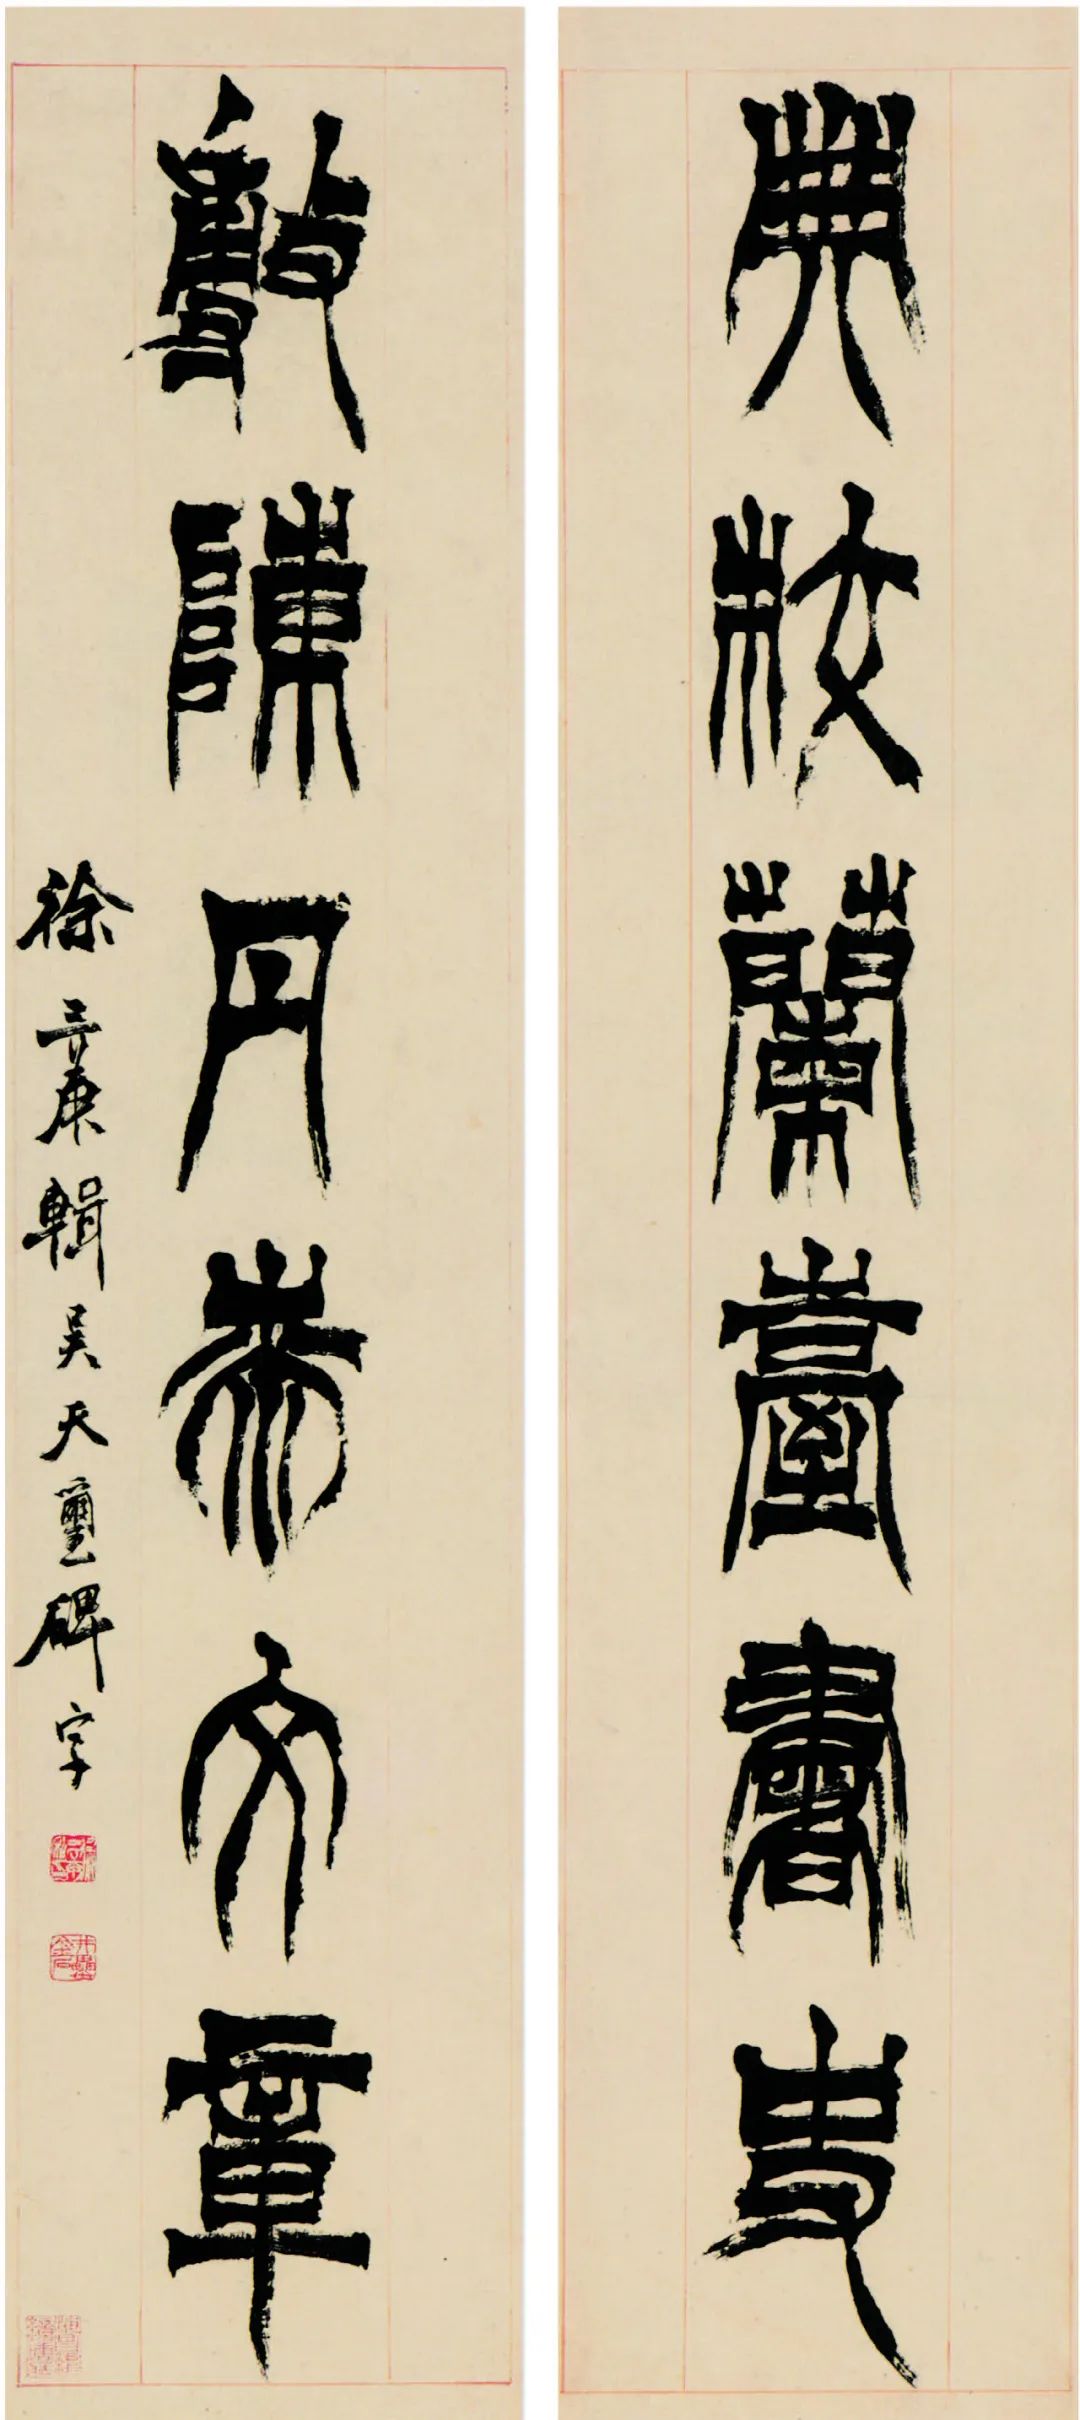 典校蘭臺書史
敷陳丹桼文章
徐三庚輯吳天璽碑字